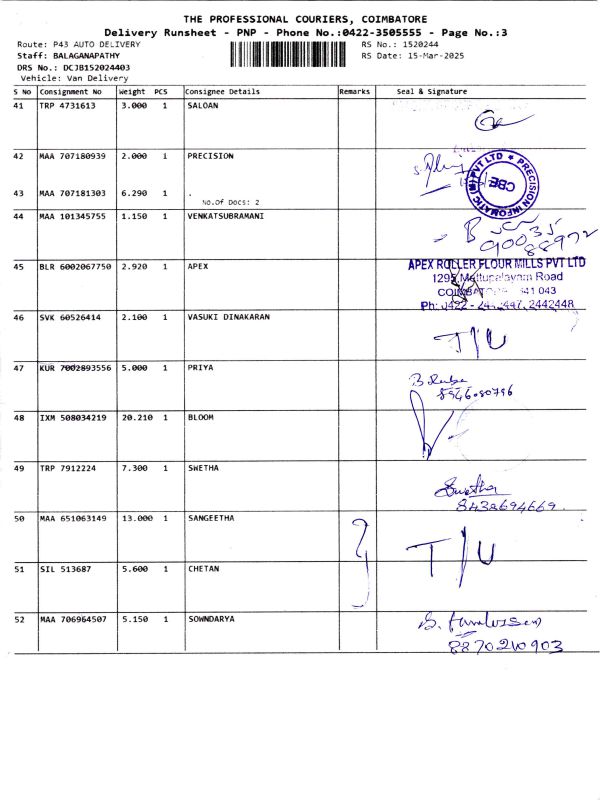 THE PROFESSIONAL COURIERS, COIMBATORE
Delivery Runsheet - PNP - Phone No.:0422-3505555 - Page No.:3
Route: P43 AUTO DELIVERY RS No.: 1520244
Staff: BALAGANAPATHY RS Date: 15-Mar-2025
DRS No.: DCJB152024403
Vehicle: Van Delivery
S No Consignment No Weight PCS Consignee Details Remarks Seal & Signature
41 TRP 4731613 3.000 1 SALOAN
42 MAA 707180939 2.000 1 PRECISION
PRECISION INFOMATIC (M) PVT LTD
CBE
43 MAA 707181303 6.290 1 .
No.Of Docs: 2
44 MAA 101345755 1.150 1 VENKATSUBRAMANI
90035
88972
45 BLR 6002067750 2.920 1 APEX
APEX ROLLER FLOUR MILLS PVT LTD
Mettupalayam Road
641 043
2442448
46 SVK 60526414 2.100 1 VASUKI DINAKARAN
T/U
47 KUR 7002893556 5.000 1 PRIYA
48 IXM 508034219 20.210 1 BLOOM
49 TRP 7912224 7.300 1 SWETHA
Swetha
8438694669
50 MAA 651063149 13.000 1 SANGEETHA
T/U
51 SIL 513687 5.600 1 CHETAN
52 MAA 706964507 5.150 1 SOWNDARYA
8870210903